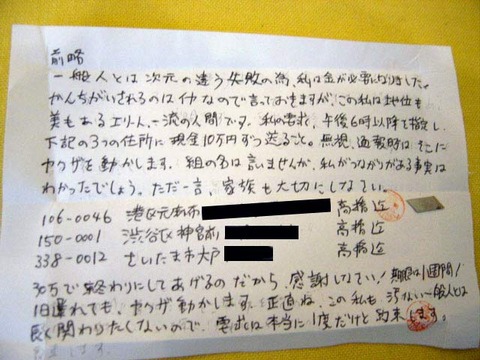 前略
一般人とは次元の違う失敗の為、私は金が必要になりました。
かんちがいされるのはイヤなので言っておきますが、この私は地位も
美もあるエリート、一流の人間です。私の要求、午後6時以降と指定し、
下記の3つの住所に現金10万円ずつ送ること。無視、通報時は
ヤクザを動かします。組の名は言いませんが、私がつながりがある事実は
わかったでしょう。ただ一言、家族も大切にしなさい。
106-0046 港区元麻布 高橋
150-0001 渋谷区神宮前 高橋
338-0012 さいたま市大戸 高橋
30万で終わりにしてあげるのだから、感謝しなさい!期限は1週間!
1日遅れても、ヤクザ動かします。正直ね、この私も、汚ない一般人とは
長く関わりたくないので、要求は本当に1度だけと約束します。